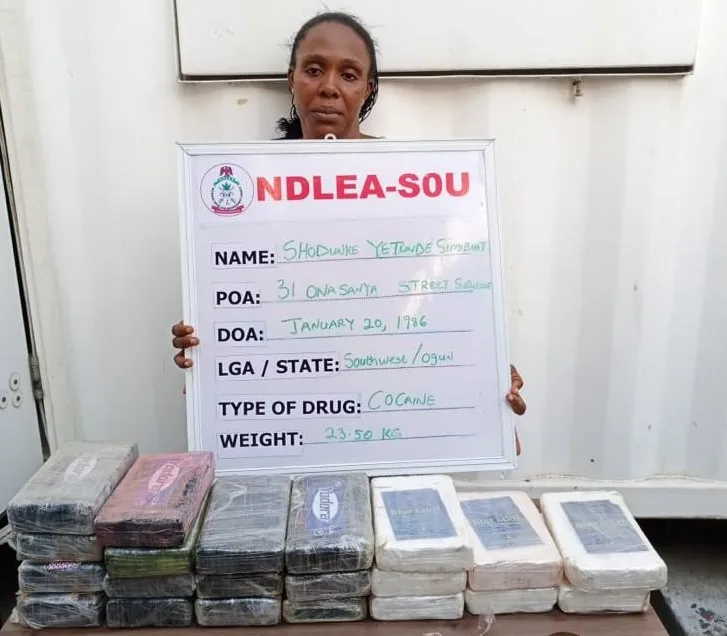 NDLEA-SOU
NAME: SHODUNKE YETUNDE SIMIBIAT
POA: 31 ONASANYA STREET SURULERE
DOA: JANUARY 20, 1986
LGA / STATE: Southwest/Ogun
TYPE OF DRUG: COCAINE
WEIGHT: 23.50 KG